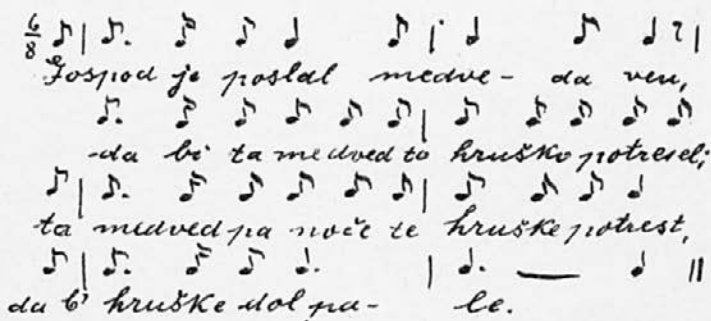 6/8
Gospod je poslal medve- da ven,
da bi ta medved to hruško potreseli;
ta medved pa noče te hruške potrest,
da b' hruške dol pa- le.